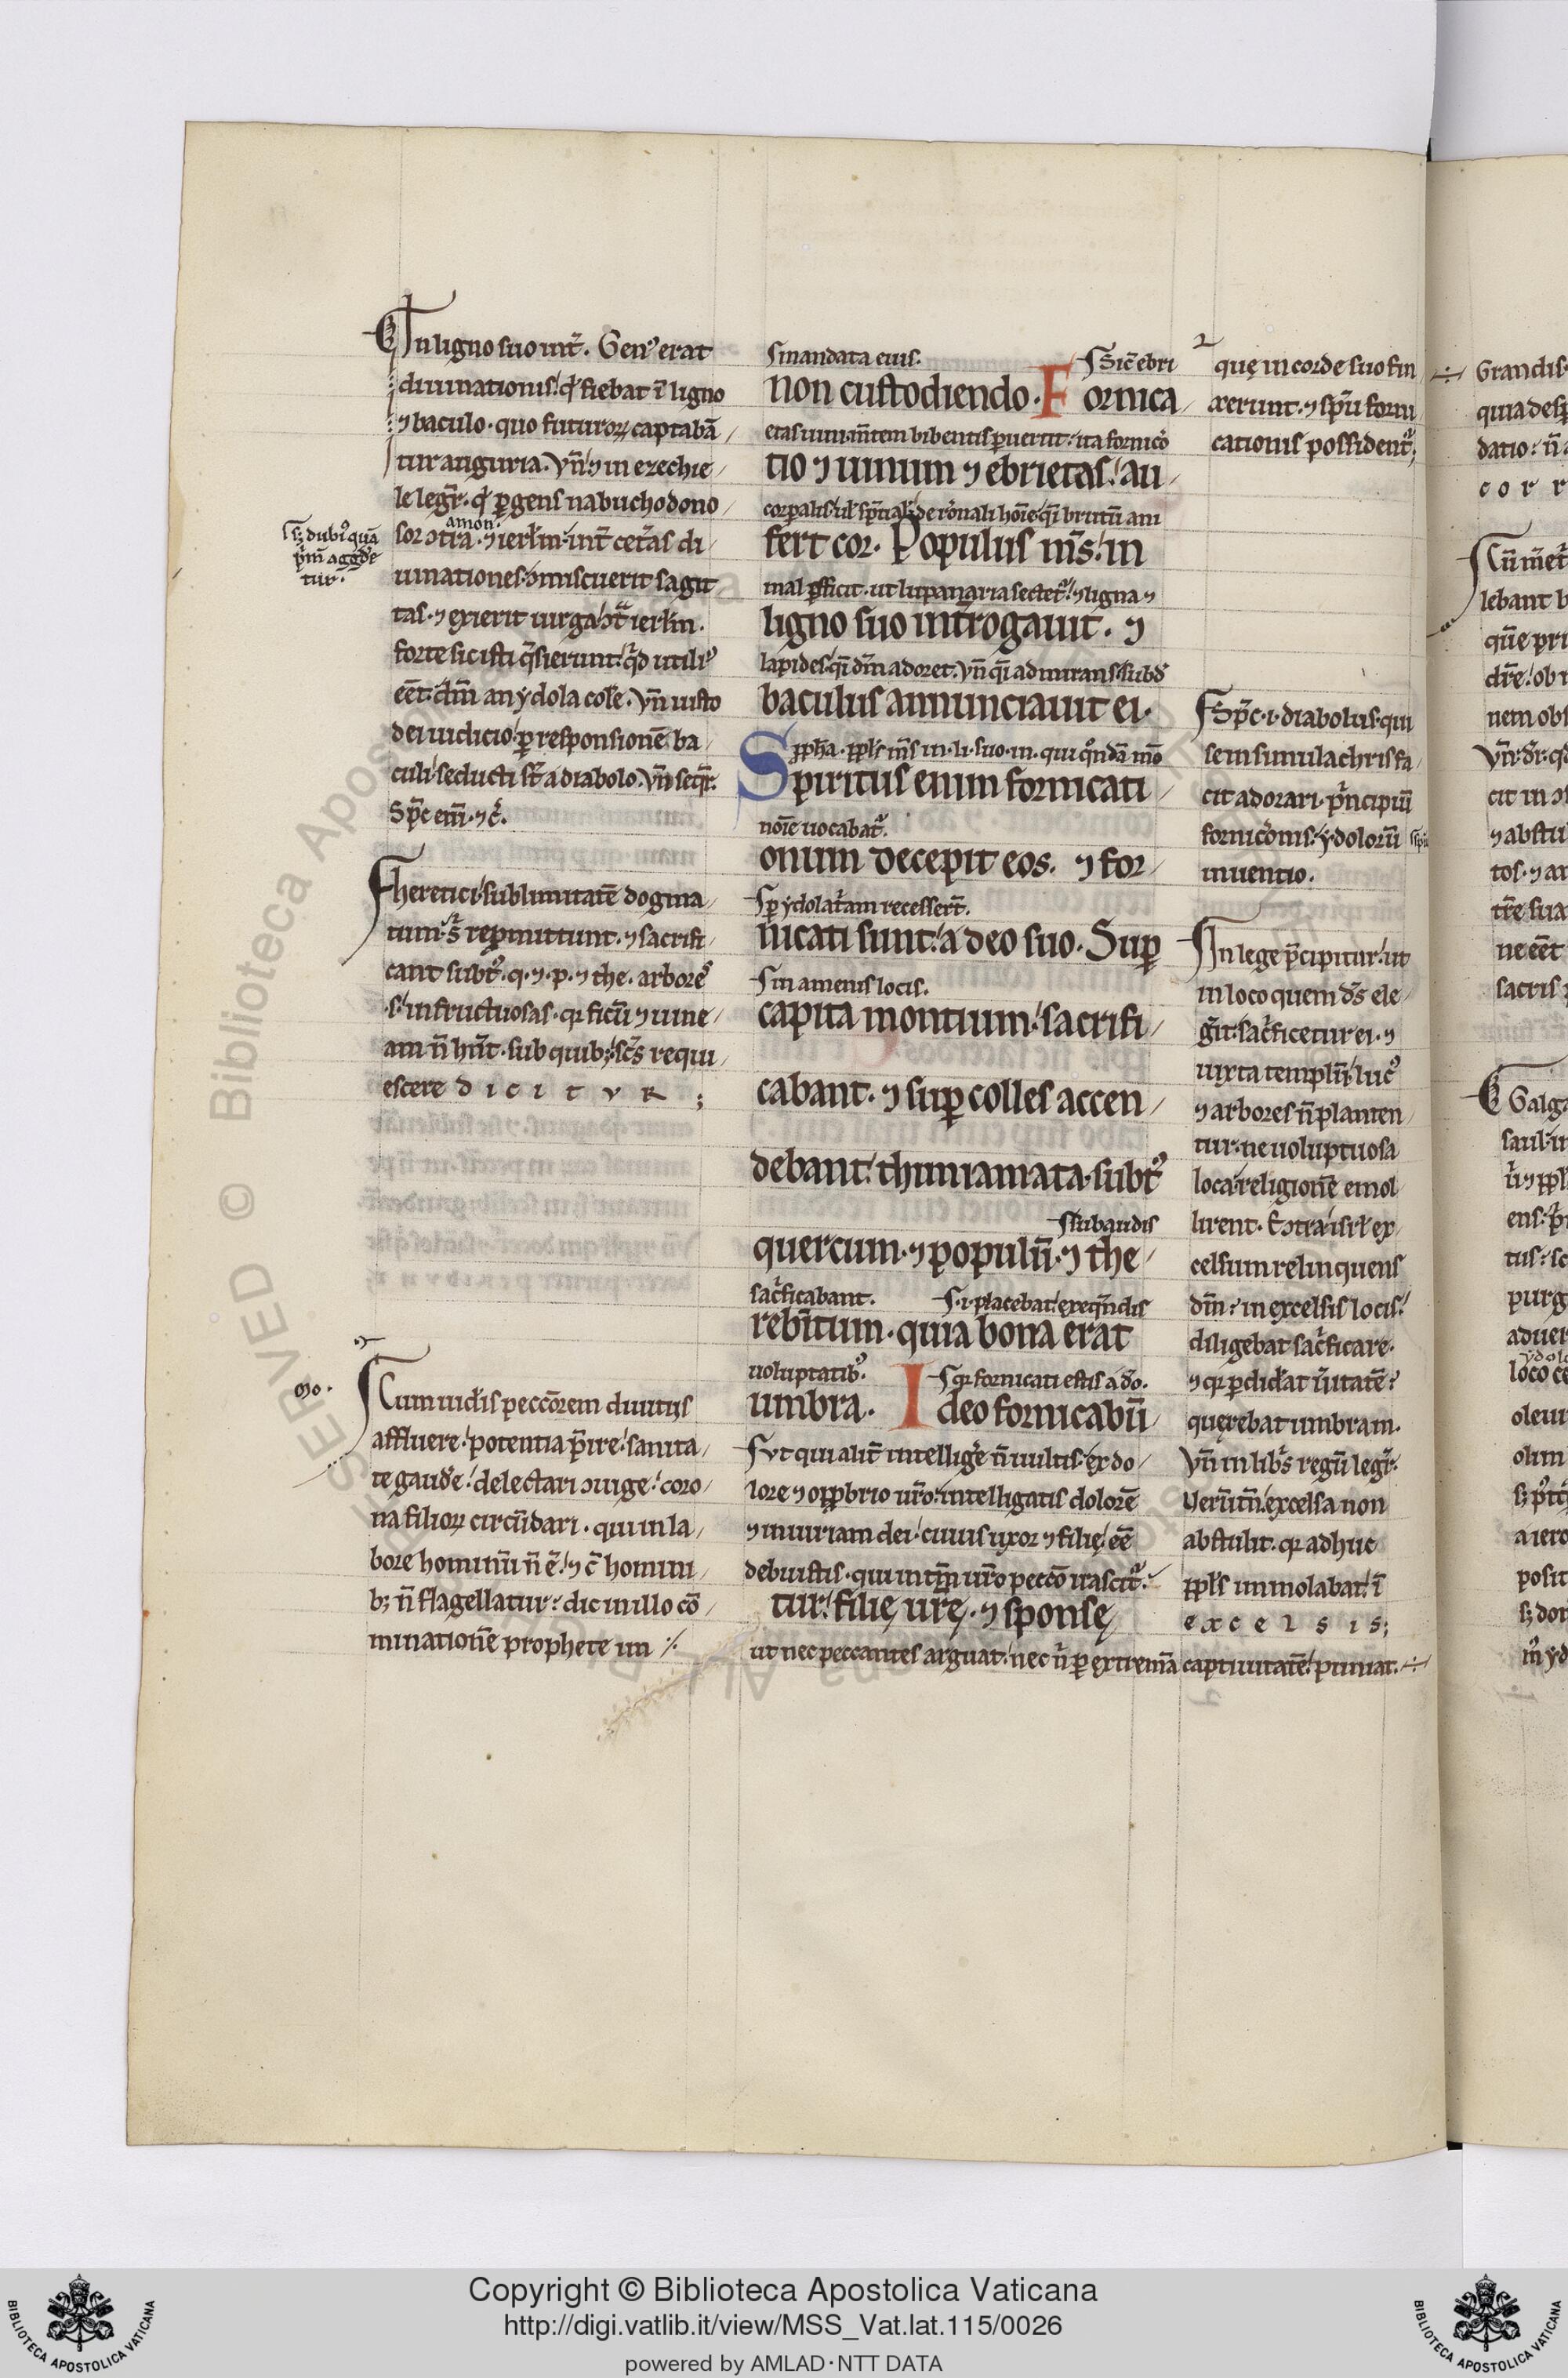 In ligno suo int̃. Gen᷒ erat
diuinationis. q̃ fiebat ĩ ligno
⁊ baculo. quo futuroꝝ captabã
tur auguria. Vñ ⁊ in ezechie
le legr̃. q̃ ꝑgens nabuchodono
amon.
sor ↄtra. ⁊ ierłm. int̃ cet̃as di
uinationes. ↄmiscuerit sagit
tas. ⁊ exierit uirga ↄt̃ ierłm.
forte sic isti q̃sierunt. q̃d utili᷒
eẽt. dm̃ an ydola col̃e. Vñ iusto
dei iudicio. ꝑ responsionẽ ba
culi. seducti st̃ a diabolo. Vñ seqr̃.
Sp̃c em̃. ⁊ c̃.
s; dubit̃ quã
p̃m aggd̃e
tur.
heretici. sublimitatẽ dogma
tum. s̃ repromittunt. ⁊ sacrifi
cant subt᷒. q. ⁊ .p. ⁊ the. arbores
.s. infructuosas. qꝛ ficũ ⁊ uine
am ñ hñt. sub quib; sc̃s requi
escere d i c i t v R ;
Cum uid̃is peccõrem diuitiis
affluere. potentia p̃ire. sanita
te gaud̃e. delectari ↄiuge. coro
na filioꝝ circũdari. qui in la
bore hominũ ñ ẽ. ⁊ c̃ homini
b; ñ flagellatur. dic in illo cõ
minationẽ prophete im ⁒
mandata eius.
Sic̃ ebri
non custodiendo. Fornica
etas uini. m̃tem bibentis ꝑuertit. ita fornicõ
tio ⁊ uinum ⁊ ebrietas. au
corꝑalis. ul̃ sp̃tialis. de rõnali hoĩe. q̃i brutũ ani
fert cor. Populus m̃s. in
mal ꝑfficit. ut lupanaria sectet᷒. ⁊ ligna ⁊
ligno suo int̃rogauit. ⁊
lapides. q̃i dm̃ adoret. Vñ q̃i admirans. subd᷒
baculus annunciauit ei.
ꝓph̃a. ppl̃s m̃s in .li. suo .in. qui q̃ndã m̃o
Spiritus enim fornicati
noĩe uocabat᷒.
onum decepit eos. ⁊ for
ꝑ ydolat̃am recessert̃.
nicati sunt. a deo suo. Suꝑ
in amenis locis.
capita montium. sacrifi
cabant. ⁊ suꝑ colles accen
debant. thimiamata. subt᷒
subaudis
quercum. ⁊ populũ. ⁊ the
sac̃ficabant.
.i. placebat. exeq̃ndis
rebĩtum. quia bona erat
uoluptatib᷒.
qꝛ fornicati estis a dõ.
umbra. Ideo fornicabũ
Vt qui alit̃ intellig̃e ñ uultis. ex do
lore ⁊ oppbrio ur̃o. intelligatis dolorẽ
⁊ iniuriam dei. cuius uxor ⁊ filię eẽ
debuistis. qui intm̃ ur̃o peccõ irascit᷒.
tur. filię ur̃ę. ⁊ sponsę
ut nec peccantes arguat. nec ñ ꝑ extremã captiuitatẽ. puniat. ÷
quę in corde suo fin
xerunt. ⁊ sp̃u forni
cationis possident᷒;
Sp̃c .i. diabolus. qui
se in simulachris fa
cit adorari. p̃ncipiũ
fornicõnis. ydolorũ
inuentio.
In lege p̃cipitur. ut
in loco quem d̃s ele
g̃it. sac̃ficetur ei. ⁊
iuxta templũ. luc᷒
⁊ arbores ñ planten
tur. ne uoluptuosa
loca. religionẽ emol
lirent. Eↄtra. isrl̃ ex
celsum relinquens
dm̃. in excelsis locis.
diligebat sac̃ficare.
⁊ qꝛ ꝑdid̃at ũitatẽ.
quęrebat umbram.
Vñ in lib̃s regũ legr̃.
Uerũtñ. excelsa non
abstulit. qꝛ adhuc
ppl̃s immolabat. ĩ
e x c e l s i s;
Grandis
quia desp
datio. ñ
c o r r
Cũ m̃et
lebant
quẽ pri
dr̃e. ob
nem obs
Vñ. dr̃.
cit in
⁊ abstu
tos. ⁊ ar
tr̃e sua
ne eẽt
sacris
Galga
saul. in
ens. p̃
tus. sc
purg
aduer
ydolo
loco
oleui
olim
a iero
posit
s; dor
Copyright © Biblioteca Apostolica Vaticana
http://digi.vatlib.it/view/MSS_Vat.lat.115/0026
powered by AMLAD·NTT DATA
BIBLIOTECA APOSTOLICA VATICANA
BIBLIOTECA APOSTOLICA VATICANA